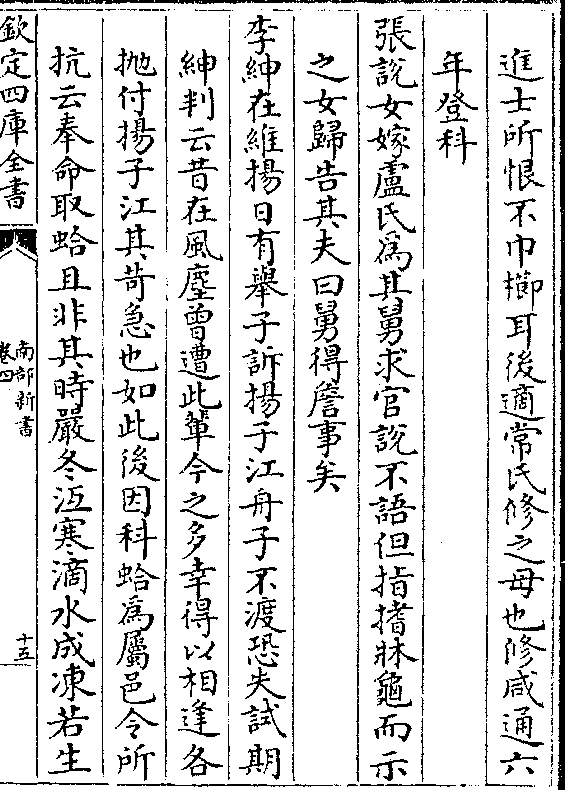 進士所恨不巾櫛耳後適常氏修之母也修咸通六
年登科
張說女嫁盧氏為其舅求官說不語但指搘牀龜而示
之女歸告其夫曰舅得詹事矣
李紳在維揚日有舉子訴揚子江舟子不渡恐失試期
紳判云昔在風塵曾遭此輩今之多幸得以相逢各
抛付揚子江其苛急也如此後因科蛤為屬邑令所
抗云奉命取蛤且非其時嚴冬沍寒滴水成凍若生
欽定四庫全書
南部新書
卷四
十五